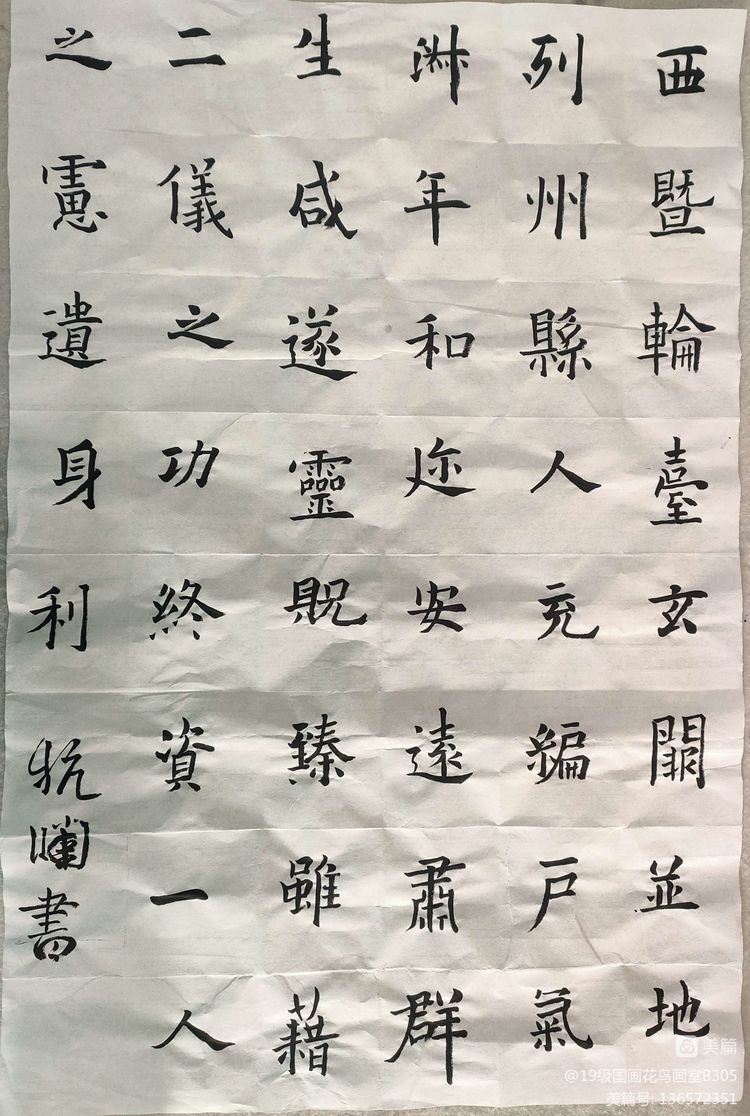 西暨輪臺玄闕並地
列州縣人充編戶氣
淑年和迩安遠肅群
生咸遂靈貺臻雖藉
二儀之功終資一人
之慮遺身利
書
美篇
@19级国画花鸟画室B305
美篇号: 136572351